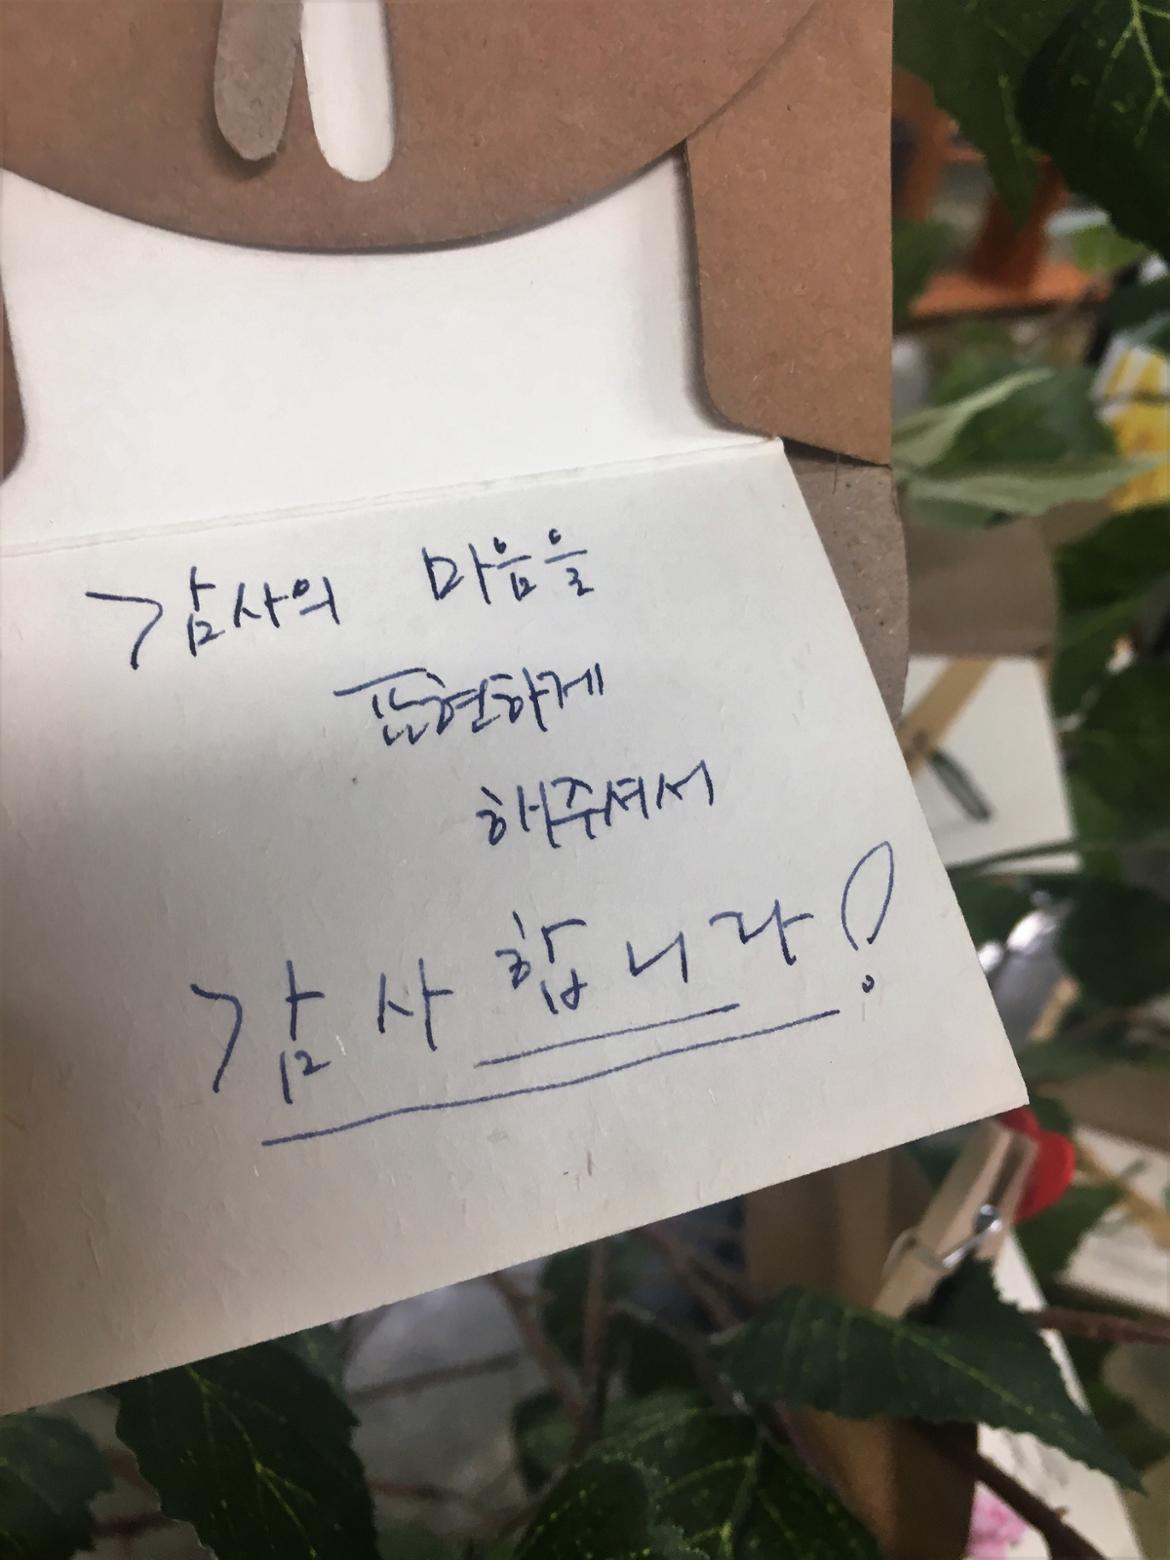 감사의 마음을
표현하게
해주셔서
감사합니다!